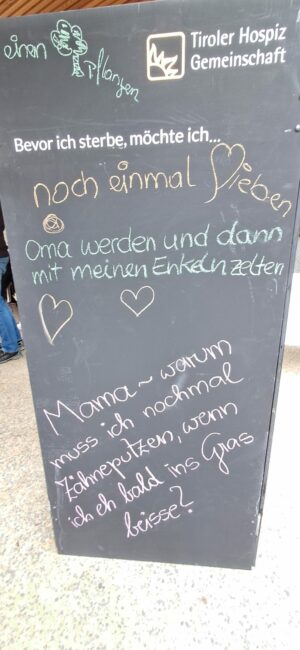 einen
pflanzen
Tiroler Hospiz
Gemeinschaft
Bevor ich sterbe, möchte ich...
noch einmal lieben
Oma werden und dann
mit meinen Enkeln zelten
Mama ~ warum
muss ich nochmal
Zähneputzen, wenn
ich eh bald ins Gras
beisse?